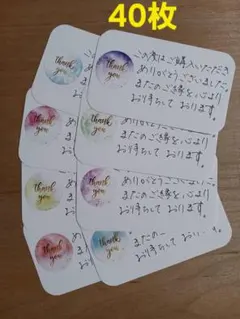 40枚
thank you
この度はご購入いただき
ありがとうございました。
またのご縁を心より
お待ちして おります。
thank you
thank you
ありがとうございました。
またのご縁を心より
お待ちして おります。
thank you
thank you
ありがとうございました。
またのご縁を心より
お待ちして おります。
thank you
thank you
またの
お待ちして おり
thank you